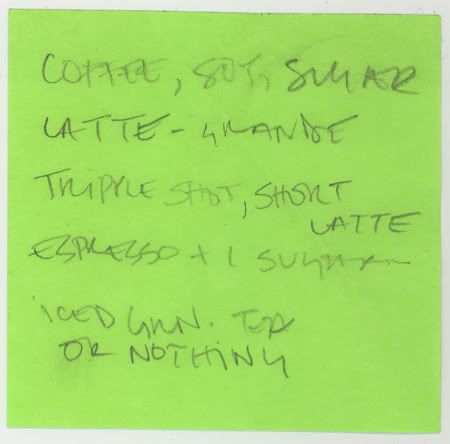 COFFEE, SOY, SUGAR
LATTE - GRANDE
TRIPPLE SHOT, SHORT
LATTE
ESPRESSO + 1 SUGAR
ICED GRN. TEA
OR NOTHING